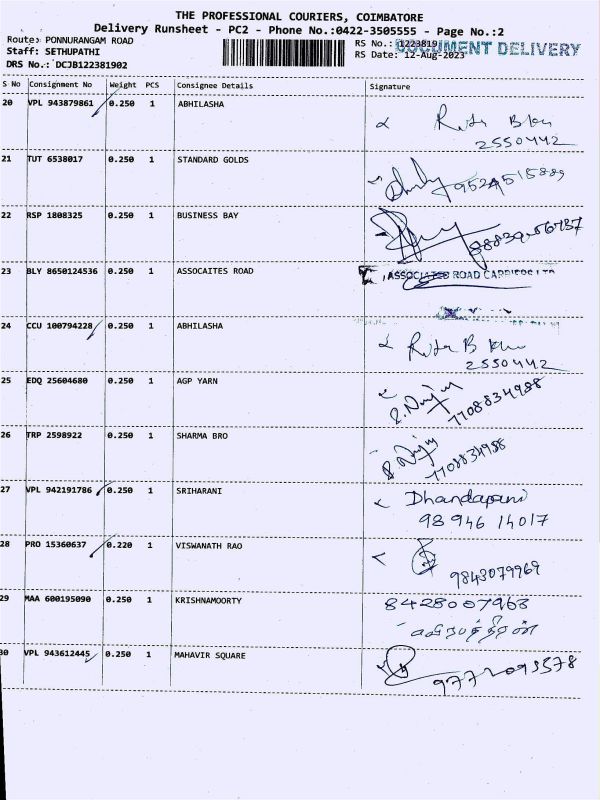 THE PROFESSIONAL COURIERS, COIMBATORE
Delivery Runsheet - PC2 - Phone No.:0422-3505555 - Page No.:2
Route: PONNURANGAM ROAD
Staff: SETHUPATHI
DRS No.: DCJB122381902
RS No.: 1223819
DOCUMENT DELIVERY
RS Date: 12-Aug-2023
S No Consignment No Weight PCS Consignee Details Signature
20 VPL 943879861 0.250 1 ABHILASHA
2550442
21 TUT 6538017 0.250 1 STANDARD GOLDS
9524515889
22 RSP 1808325 0.250 1 BUSINESS BAY
23 BLY 8650124536 0.250 1 ASSOCAITES ROAD
ASSOCIATED ROAD CARRIERS LTD
24 CCU 100794228 0.250 1 ABHILASHA
2550442
25 EDQ 25604680 0.250 1 AGP YARN
7708834988
26 TRP 2598922 0.250 1 SHARMA BRO
7708834988
27 VPL 942191786 0.250 1 SRIHARANI
Dhandapani
98946 14017
28 PRO 15360637 0.220 1 VISWANATH RAO
9843079969
29 MAA 600195090 0.250 1 KRISHNAMOORTY
8428007963
30 VPL 943612445 0.250 1 MAHAVIR SQUARE